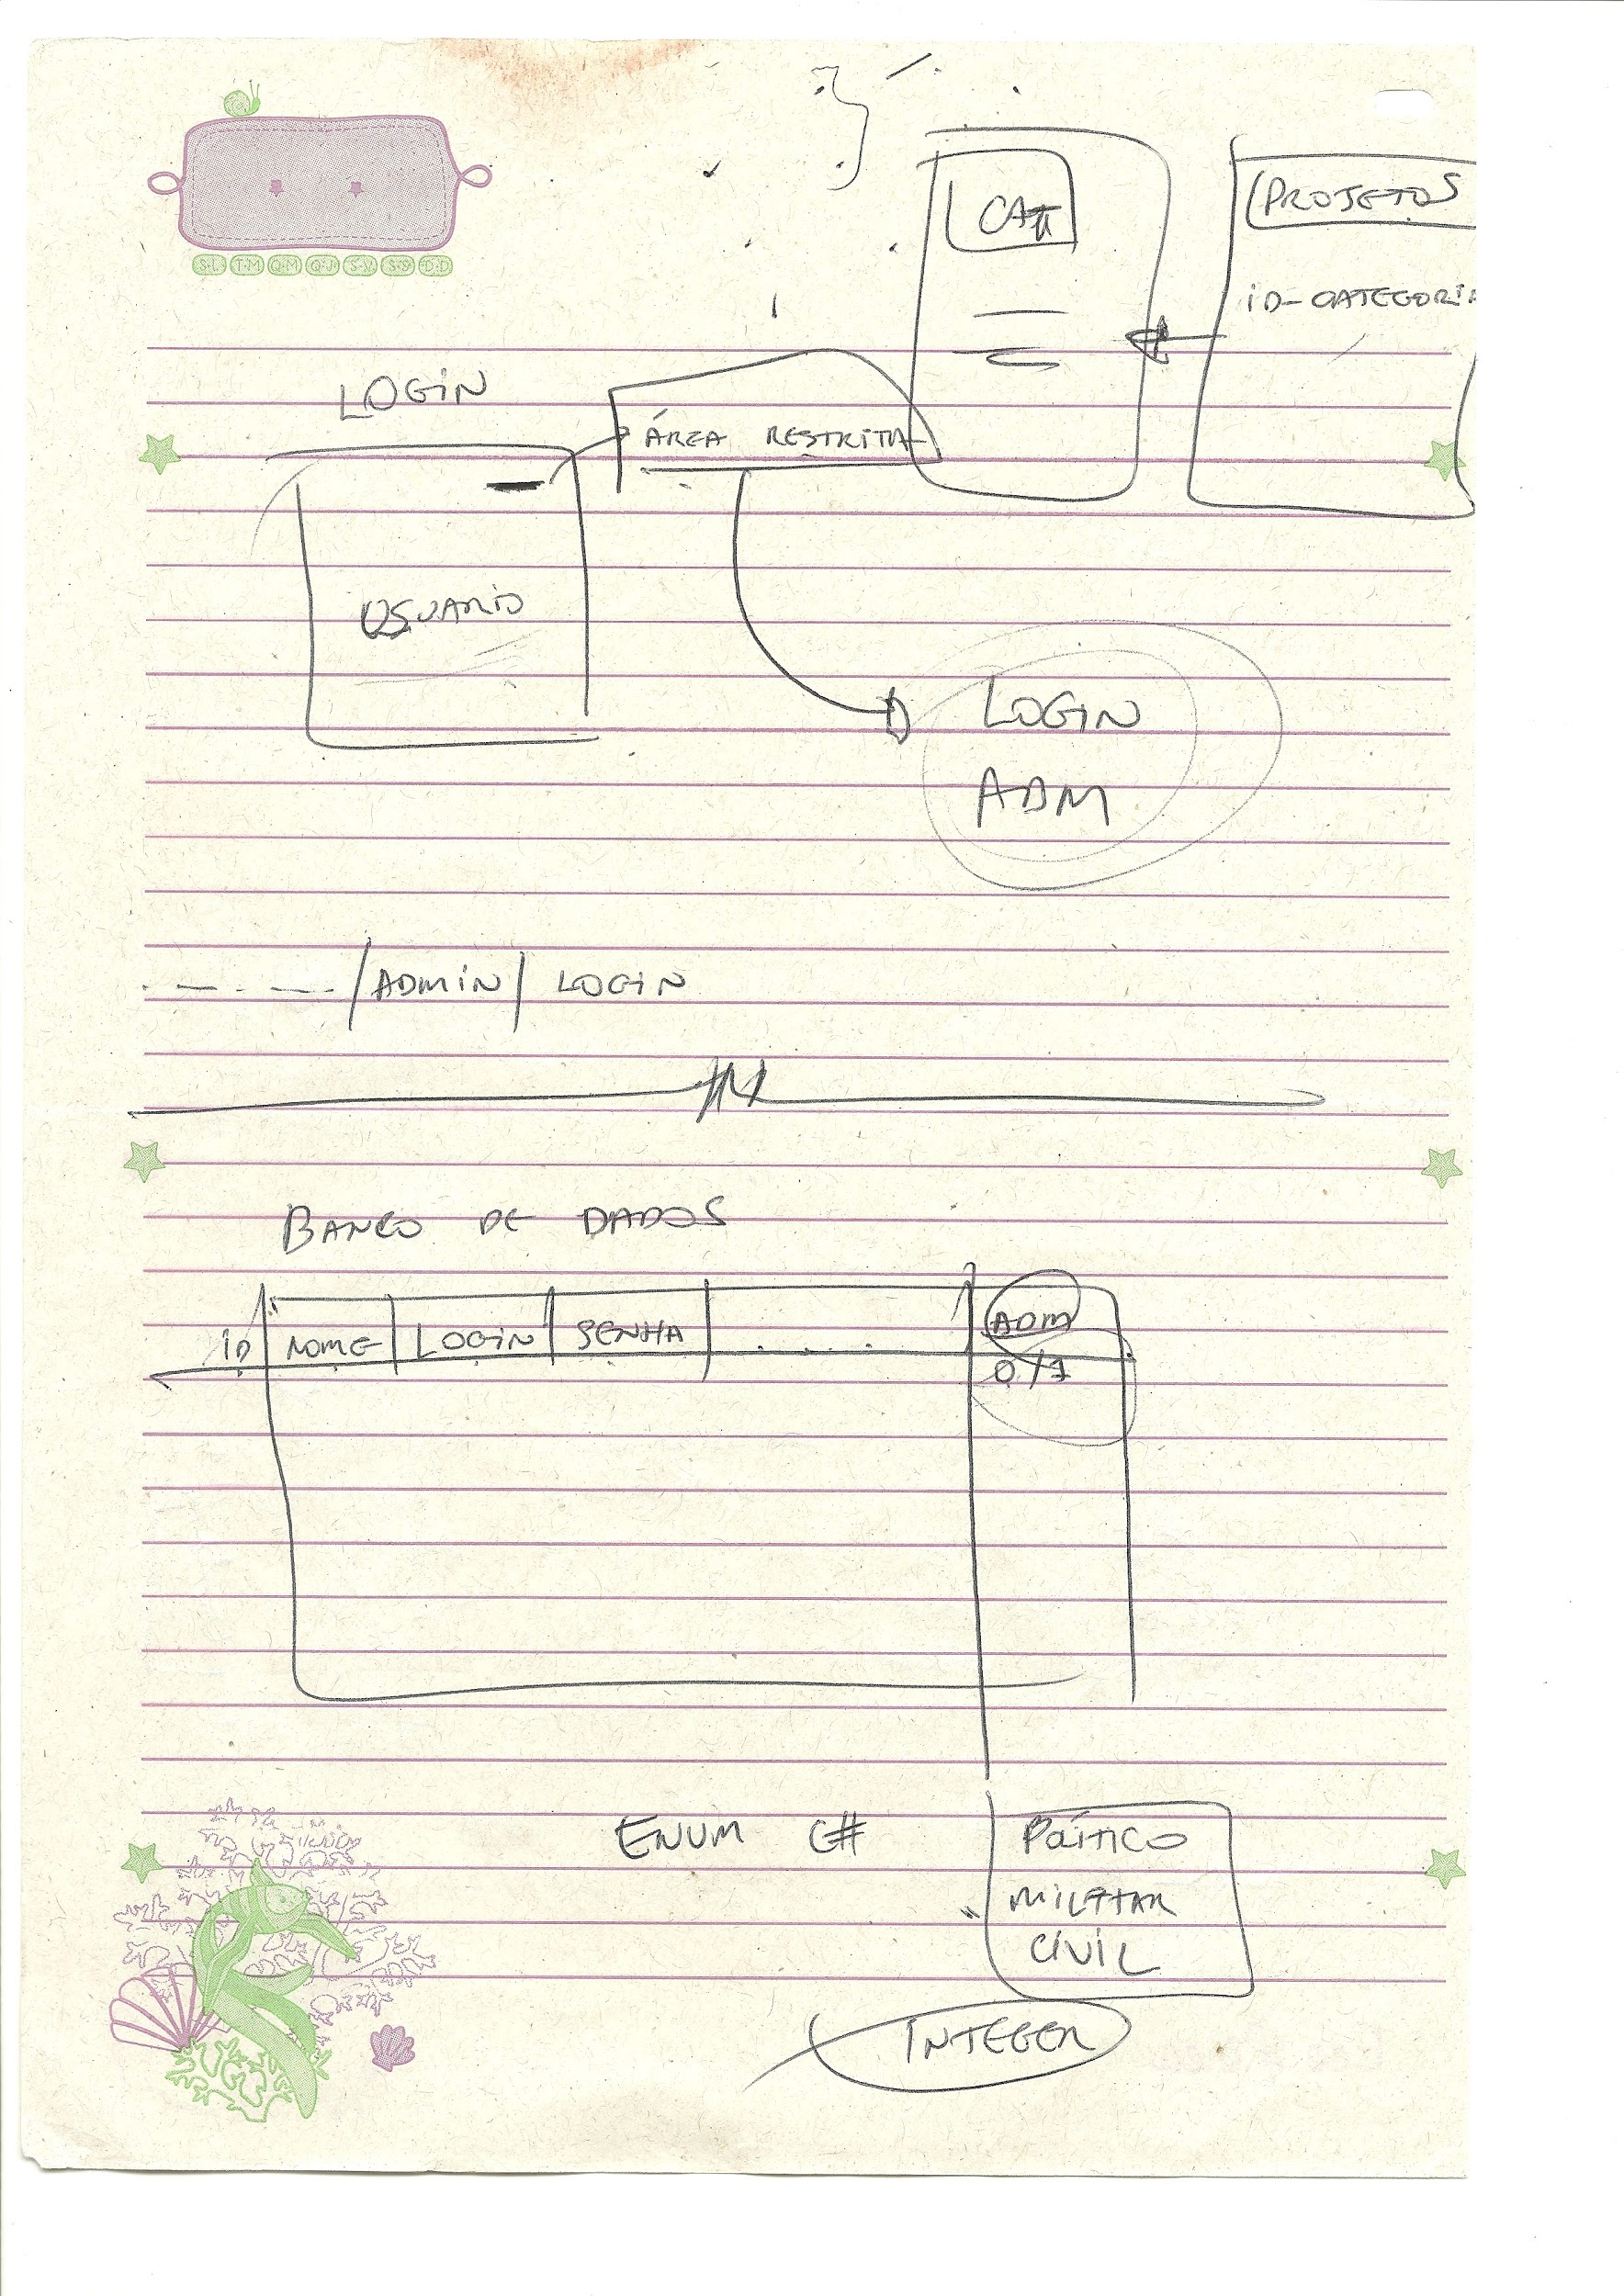 CAT
PROJETOS
ID-CATEGORIA
LOGIN
ÁREA RESTRITA
USUARIO
LOGIN
ADM
/ADMIN/ LOGIN
BANCO DE DADOS
ID NOME LOGIN SENHA .... ADM
0/1
ENUM C#
POÍTICO
MILITAR
CIVIL
INTEGER
S·L T·M Q·M Q·J S·V S·S D·D